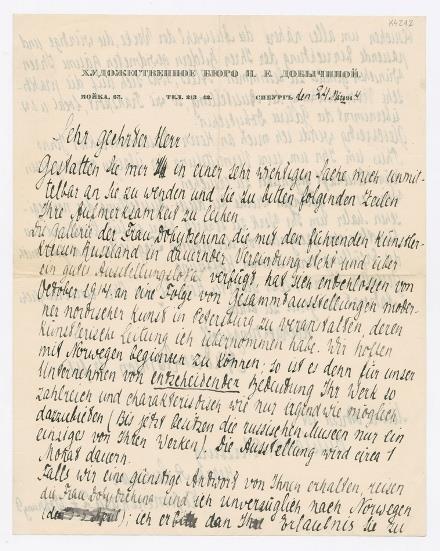 K4242
ХУДОЖЕСТВЕННОЕ БЮРО Н. Е. ДОБЫЧИНОЙ.
МОЙКА, 63. ТЕЛ. 213-42. СПБУРГЪ, den 24 März 14
Sehr geehrter Herr
Gestatten Sie mir in einer sehr wichtigen Sache mich unmit-
telbar an Sie zu wenden und Sie zu bitten folgenden Zeilen
Ihre Aufmerksamkeit zu leihen
Die Gallerie der Frau Dobytschina, die mit den führenden Künstler-
kreisen Russland in dauernder Verbindung steht und über
ein gutes Ausstellungslokal verfügt hat sich entschlossen von
October 1914 an eine Folge von Gesammtausstellungen moder-
ner nordischer Kunst in Petersburg zu veranstalten, deren
künstlerische Leitung ich übernommen habe. Wir hoffen
mit Norwegen beginnen zu können; so ist es denn für unser
Unternehmen von entscheidender Bedeutung Ihr Werk so
zahlreich und charakteristisch wie nur irgendwie möglich
darzubieten (Bis jetzt besitzen die russischen Museen nur ein
einziges von Ihren Werken). Die Ausstellung wird circa 1
Monat dauern.
Falls wir eine günstige Antwort von Ihnen erhalten, reisen
die Frau Dobytschina und ich unverzüglich nach Norwegen
April); ich erbitte dan Ihre Erlaubnis Sie zu